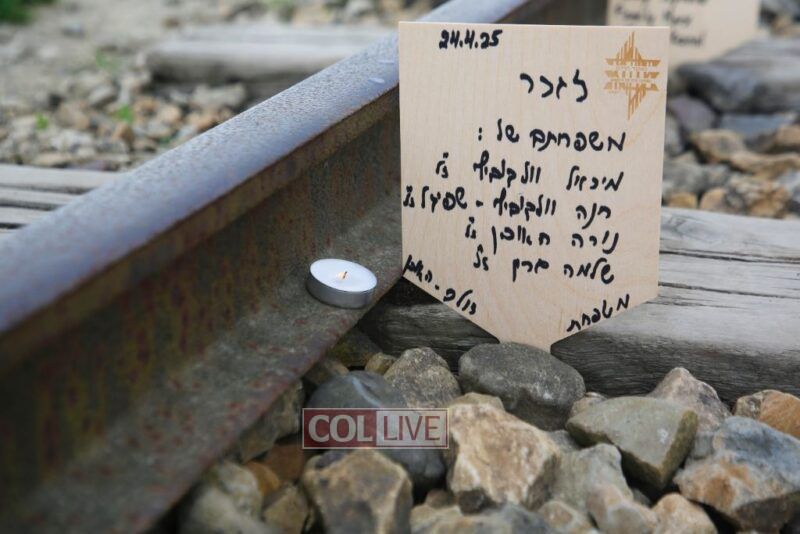 24.4.25
לזכר
משפחתם של :
מיכאל וולקוביץ ז"ל
חנה וולקוביץ - שפיגל ז"ל
נורה ז"ל
שלמה ברק ז"ל
משפחת
COLLIVE